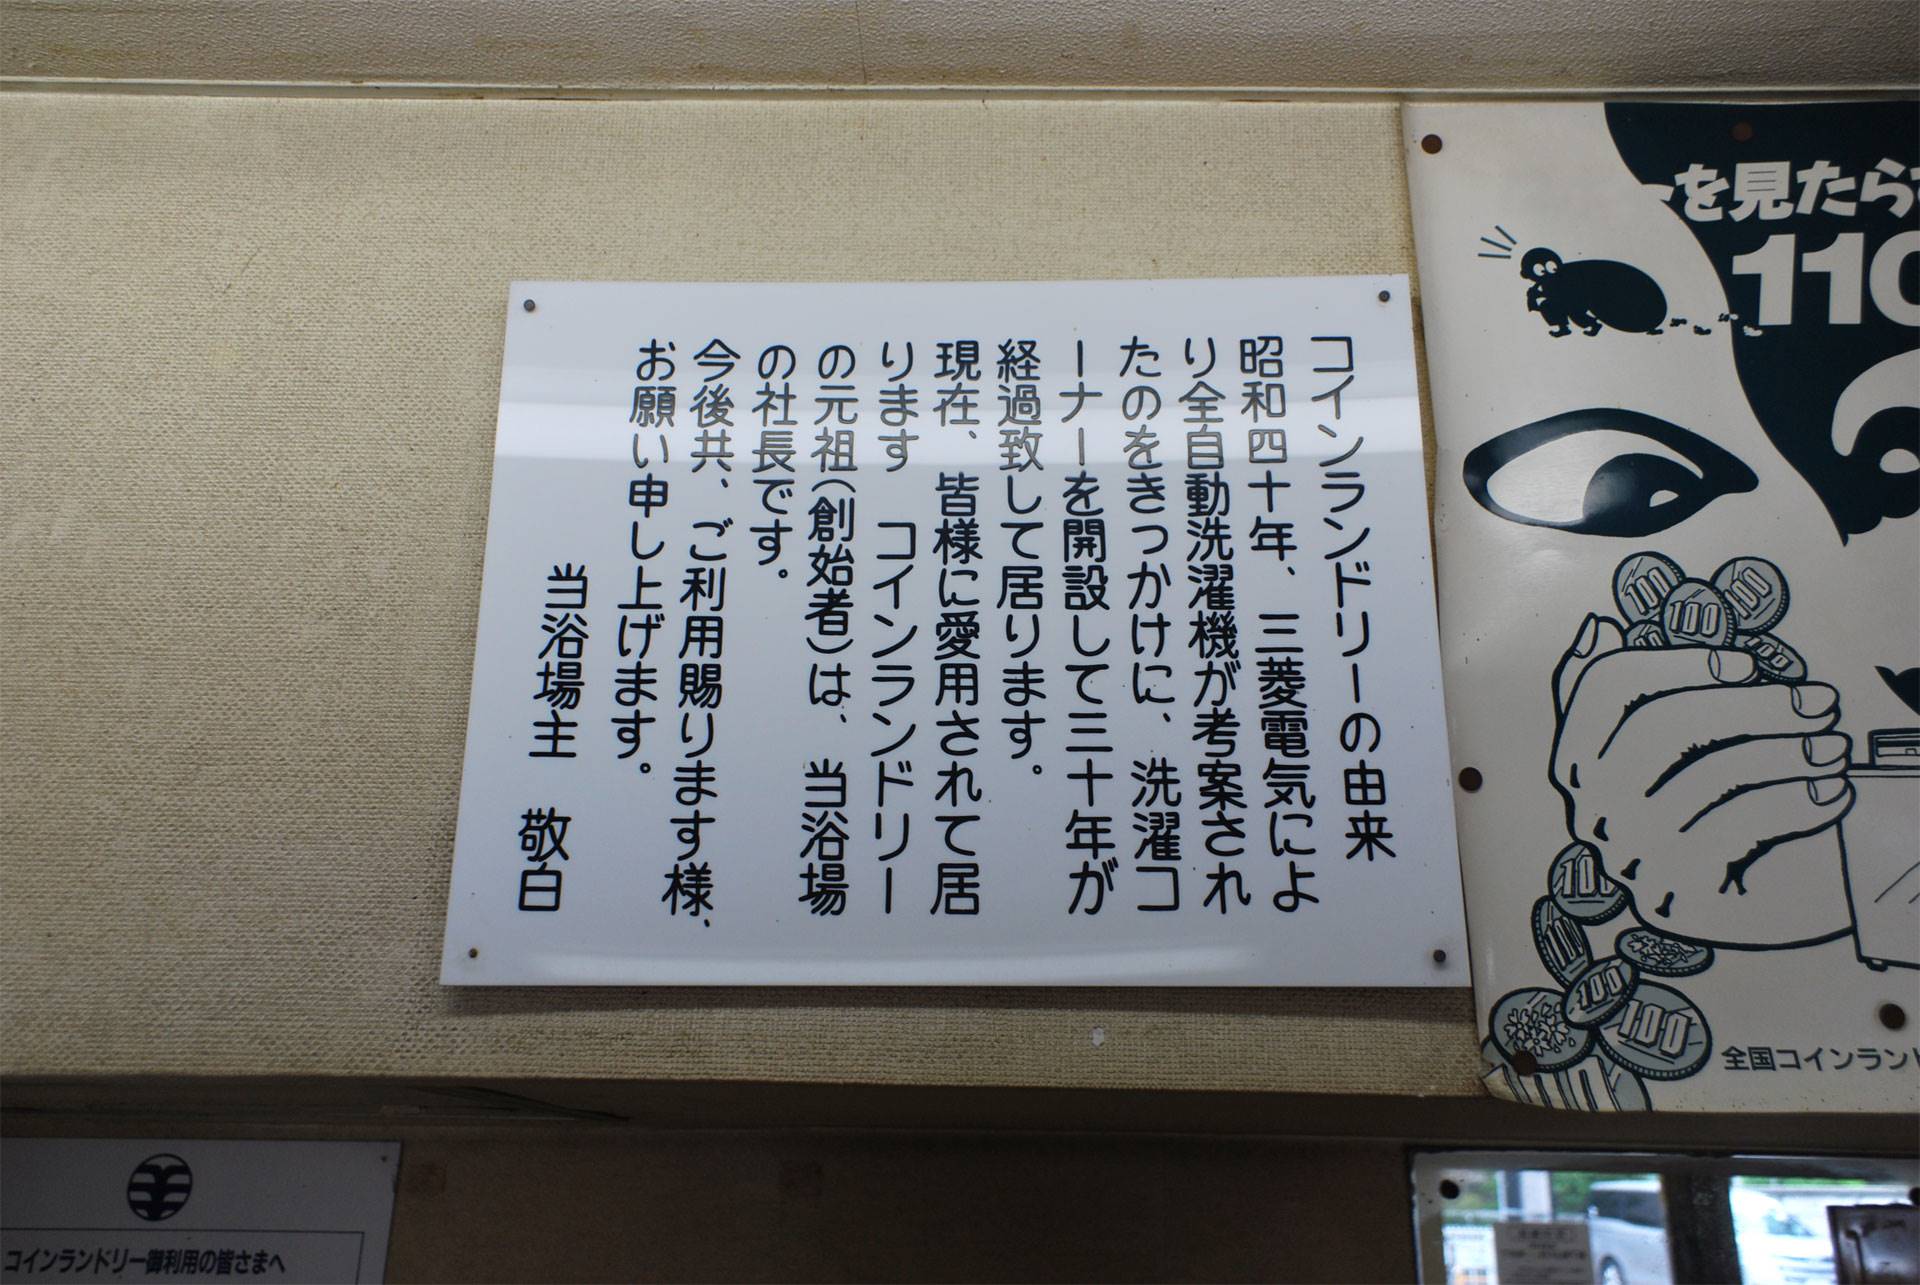 コインランドリーの由来
昭和四十年、三菱電気によ
り全自動洗濯機が考案され
たのをきっかけに、洗濯コ
ーナーを開設して三十年が
経過致して居ります。
現在、皆様に愛用されて居
ります コインランドリー
の元祖(創始者)は、当浴場
の社長です。
今後共、ご利用賜ります様、
お願い申し上げます。
当浴場主 敬白
を見たら
110
100
100
100
100
100
100
100
100
全国コインランド
コインランドリー御利用の皆さまへ